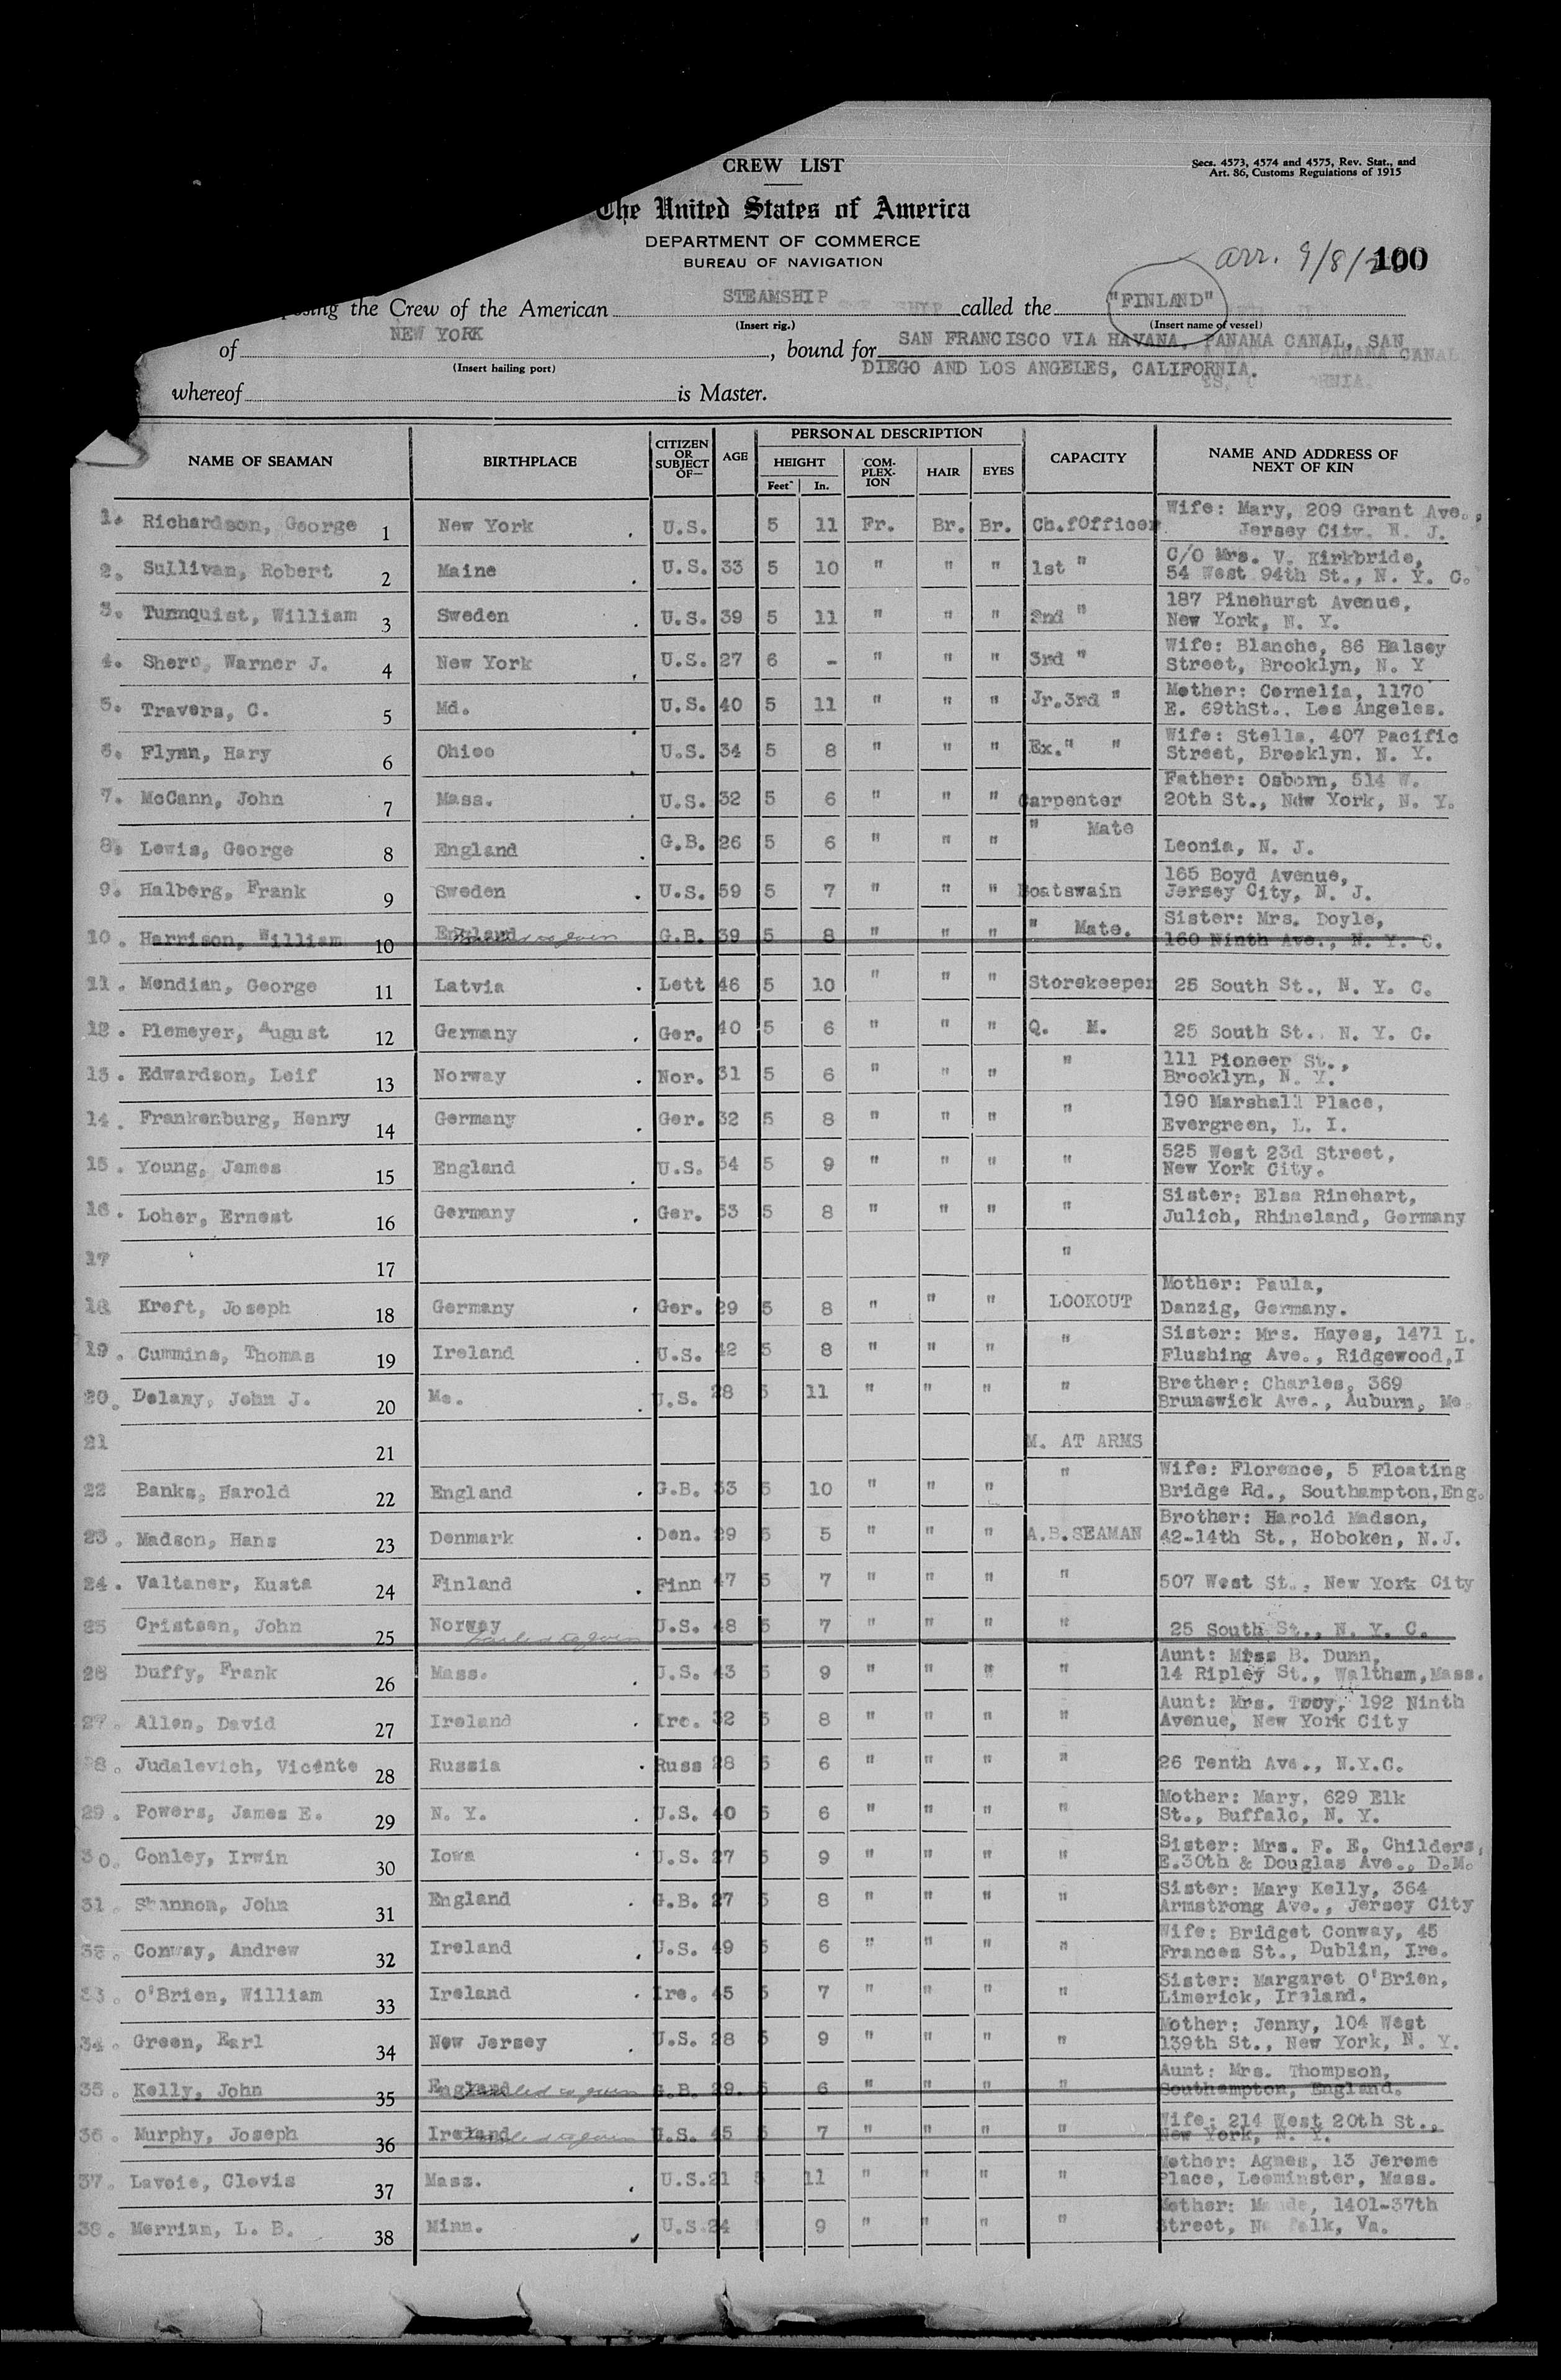 CREW LIST
Secs. 4573, 4574 and 4575, Rev. Stat., and
Art. 86, Customs Regulations of 1915
The United States of America
DEPARTMENT OF COMMERCE
BUREAU OF NAVIGATION
arr. 9/8/ 100
the Crew of the American STEAMSHIP called the "FINLAND"
(Insert rig.) (Insert name of vessel)
of NEW YORK, bound for SAN FRANCISCO VIA HAVANA, PANAMA CANAL, SAN
(Insert hailing port) DIEGO AND LOS ANGELES, CALIFORNIA.
whereof is Master.
NAME OF SEAMAN BIRTHPLACE CITIZEN OR SUBJECT OF— AGE PERSONAL DESCRIPTION CAPACITY NAME AND ADDRESS OF NEXT OF KIN
HEIGHT COM-PLEX-ION HAIR EYES
Feet In.
1. Richardson, George 1 New York U.S. 5 11 Fr. Br. Br. Ch.fOfficer Wife: Mary, 209 Grant Ave.,
Jersey City. N. J.
2. Sullivan, Robert 2 Maine U.S. 33 5 10 " " " 1st " C/O Mrs. V. Kirkbride,
54 West 94th St., N. Y. C.
3. Turnquist, William 3 Sweden U.S. 39 5 11 " " " 2nd " 187 Pinehurst Avenue,
New York, N. Y.
4. Warner J. 4 New York U.S. 27 6 - " " " 3rd " Wife: Blanche, 86 Halsey
Street, Brooklyn, N. Y
5. Travers, C. 5 Md. U.S. 40 5 11 " " " Jr.3rd " Mother: Cornelia, 1170
E. 69thSt., Los Angeles.
6. Flynn, Hary 6 Ohioo U.S. 34 5 8 " " " Ex." " Wife: Stella, 407 Pacific
Street, Brooklyn. N. Y.
7. McCann, John 7 Mass. U.S. 32 5 6 " " " Carpenter Father: Osborn, 514 W.
20th St., New York, N. Y.
8. Lewis, George 8 England G.B. 26 5 6 " " " " Mate Leonia, N. J.
9. Halberg, Frank 9 Sweden U.S. 59 5 7 " " " Boatswain 165 Boyd Avenue,
Jersey City, N. J.
10. Harrison, William 10 England G.B. 39 5 8 " " " " Mate. Sister: Mrs. Doyle,
160 Ninth Ave., N. Y. C.
11. Mendian, George 11 Latvia Lett 46 5 10 " " " Storekeeper 25 South St., N. Y. C.
12. Plemeyer, August 12 Germany Ger. 40 5 6 " " " Q. M. 25 South St., N. Y. C.
13. Edwardson, Leif 13 Norway Nor. 31 5 6 " " " " 111 Pioneer St.,
Brooklyn, N. Y.
14. Frankenburg, Henry 14 Germany Ger. 32 5 8 " " " " 190 Marshall Place,
Evergreen, L. I.
15. Young, James 15 England U.S. 34 5 9 " " " " 525 West 23d Street,
New York City.
16. Loher, Ernest 16 Germany Ger. 33 5 8 " " " " Sister: Elsa Rinehart,
Julich, Rhineland, Germany
17 17 "
18 Kreft, Joseph 18 Germany Ger. 29 5 8 " " " LOOKOUT Mother: Paula,
Danzig, Germany.
19. Cummins, Thomas 19 Ireland U.S. 42 5 8 " " " " Sister: Mrs. Hayes, 1471 L.
Flushing Ave., Ridgewood,I
20. Delany, John J. 20 Me. U.S. 28 5 11 " " " " Brother: Charles, 369
Brunswick Ave., Auburn, Me.
21 21 M. AT ARMS
22 Banks, Harold 22 England G.B. 33 5 10 " " " " Wife: Florence, 5 Floating
Bridge Rd., Southampton,Eng.
23. Madson, Hans 23 Denmark Den. 29 5 5 " " " A.B.SEAMAN Brother: Harold Madson,
42-14th St., Hoboken, N.J.
24. Valtaner, Kusta 24 Finland Finn 47 5 7 " " " " 507 West St., New York City
25 Cristsen, John 25 Norway Failed to join U.S. 48 5 7 " " " " 25 South St., N. Y. C.
26 Duffy, Frank 26 Mass. U.S. 43 5 9 " " " " Aunt: Miss B. Dunn,
14 Ripley St., Waltham,Mass.
27. Allen, David 27 Ireland Ire. 32 5 8 " " " " Aunt: Mrs. 192 Ninth
Avenue, New York City
28. Judalevich, Vicente 28 Russia Russ 28 5 6 " " " " 26 Tenth Ave., N.Y.C.
29. Powers, James E. 29 N. Y. U.S. 40 5 6 " " " " Mother: Mary, 629 Elk
St., Buffalo, N. Y.
30. Conley, Irwin 30 Iowa U.S. 27 5 9 " " " " Sister: Mrs. F. E. Childers,
E.30th & Douglas Ave., D.M.
31. Shannon, John 31 England G.B. 27 5 8 " " " " Sister: Mary Kelly, 364
Armstrong Ave., Jersey City
32. Conway, Andrew 32 Ireland U.S. 49 5 6 " " " " Wife: Bridget Conway, 45
Frances St., Dublin, Ire.
33. O'Brien, William 33 Ireland Ire. 45 5 7 " " " " Sister: Margaret O'Brien,
Limerick, Ireland.
34. Green, Earl 34 New Jersey U.S. 28 5 9 " " " " Mother: Jenny, 104 West
139th St., New York, N. Y.
35. Kelly, John 35 England Failed to join G.B. 29. 5 6 " " " " Aunt: Mrs. Thompson,
Southampton, England.
36. Murphy, Joseph 36 Ireland Failed to join U.S. 45 5 7 " " " " Wife: 214 West 20th St.,
New York, N. Y.
37. Lavoie, Clovis 37 Mass. U.S.21 5 11 " " " " Mother: Agnes, 13 Jerome
Place, Leominster, Mass.
38. Merrian, L. B. 38 Minn. U.S.24 9 " " " " Mother: 1401-37th
Street, Va.